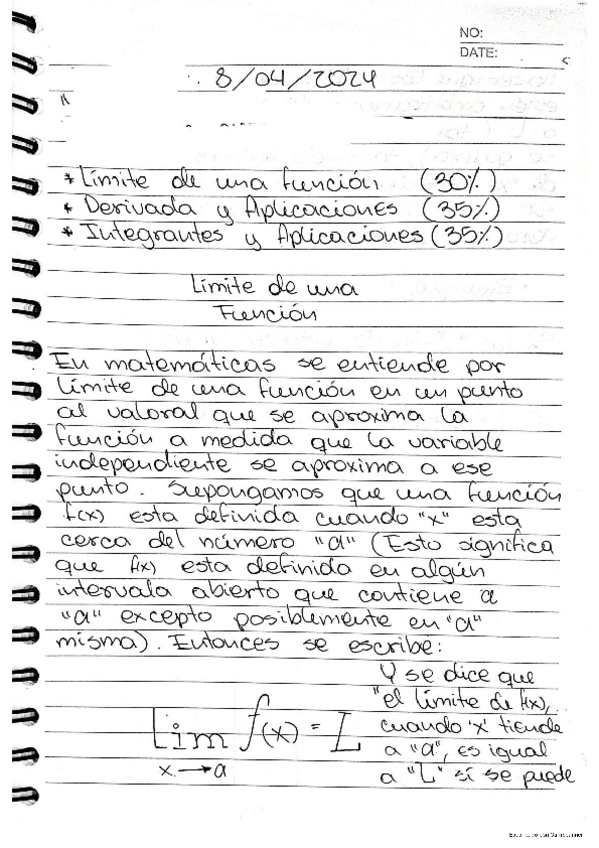 NO:
DATE:
8/04/2024
* Límite de una función (30%)
* Derivada y Aplicaciones (35%)
* Integrantes y Aplicaciones (35%)
Límite de una
Función
En matemáticas se entiende por
límite de una función en un punto
al valoral que se aproxima la
función a medida que la variable
independiente se aproxima a ese
punto. Supongamos que una función
f(x) esta definida cuando "x" esta
cerca del número "a" (Esto significa
que f(x) esta definida en algún
intervala abierto que contiene a
"a" excepto posiblemente en "a"
misma). Entonces se escribe:
Lim f(x) = L
x → a
Y se dice que
"el límite de f(x),
cuando "x" tiende
a "a", es igual
a "L" sí se puede